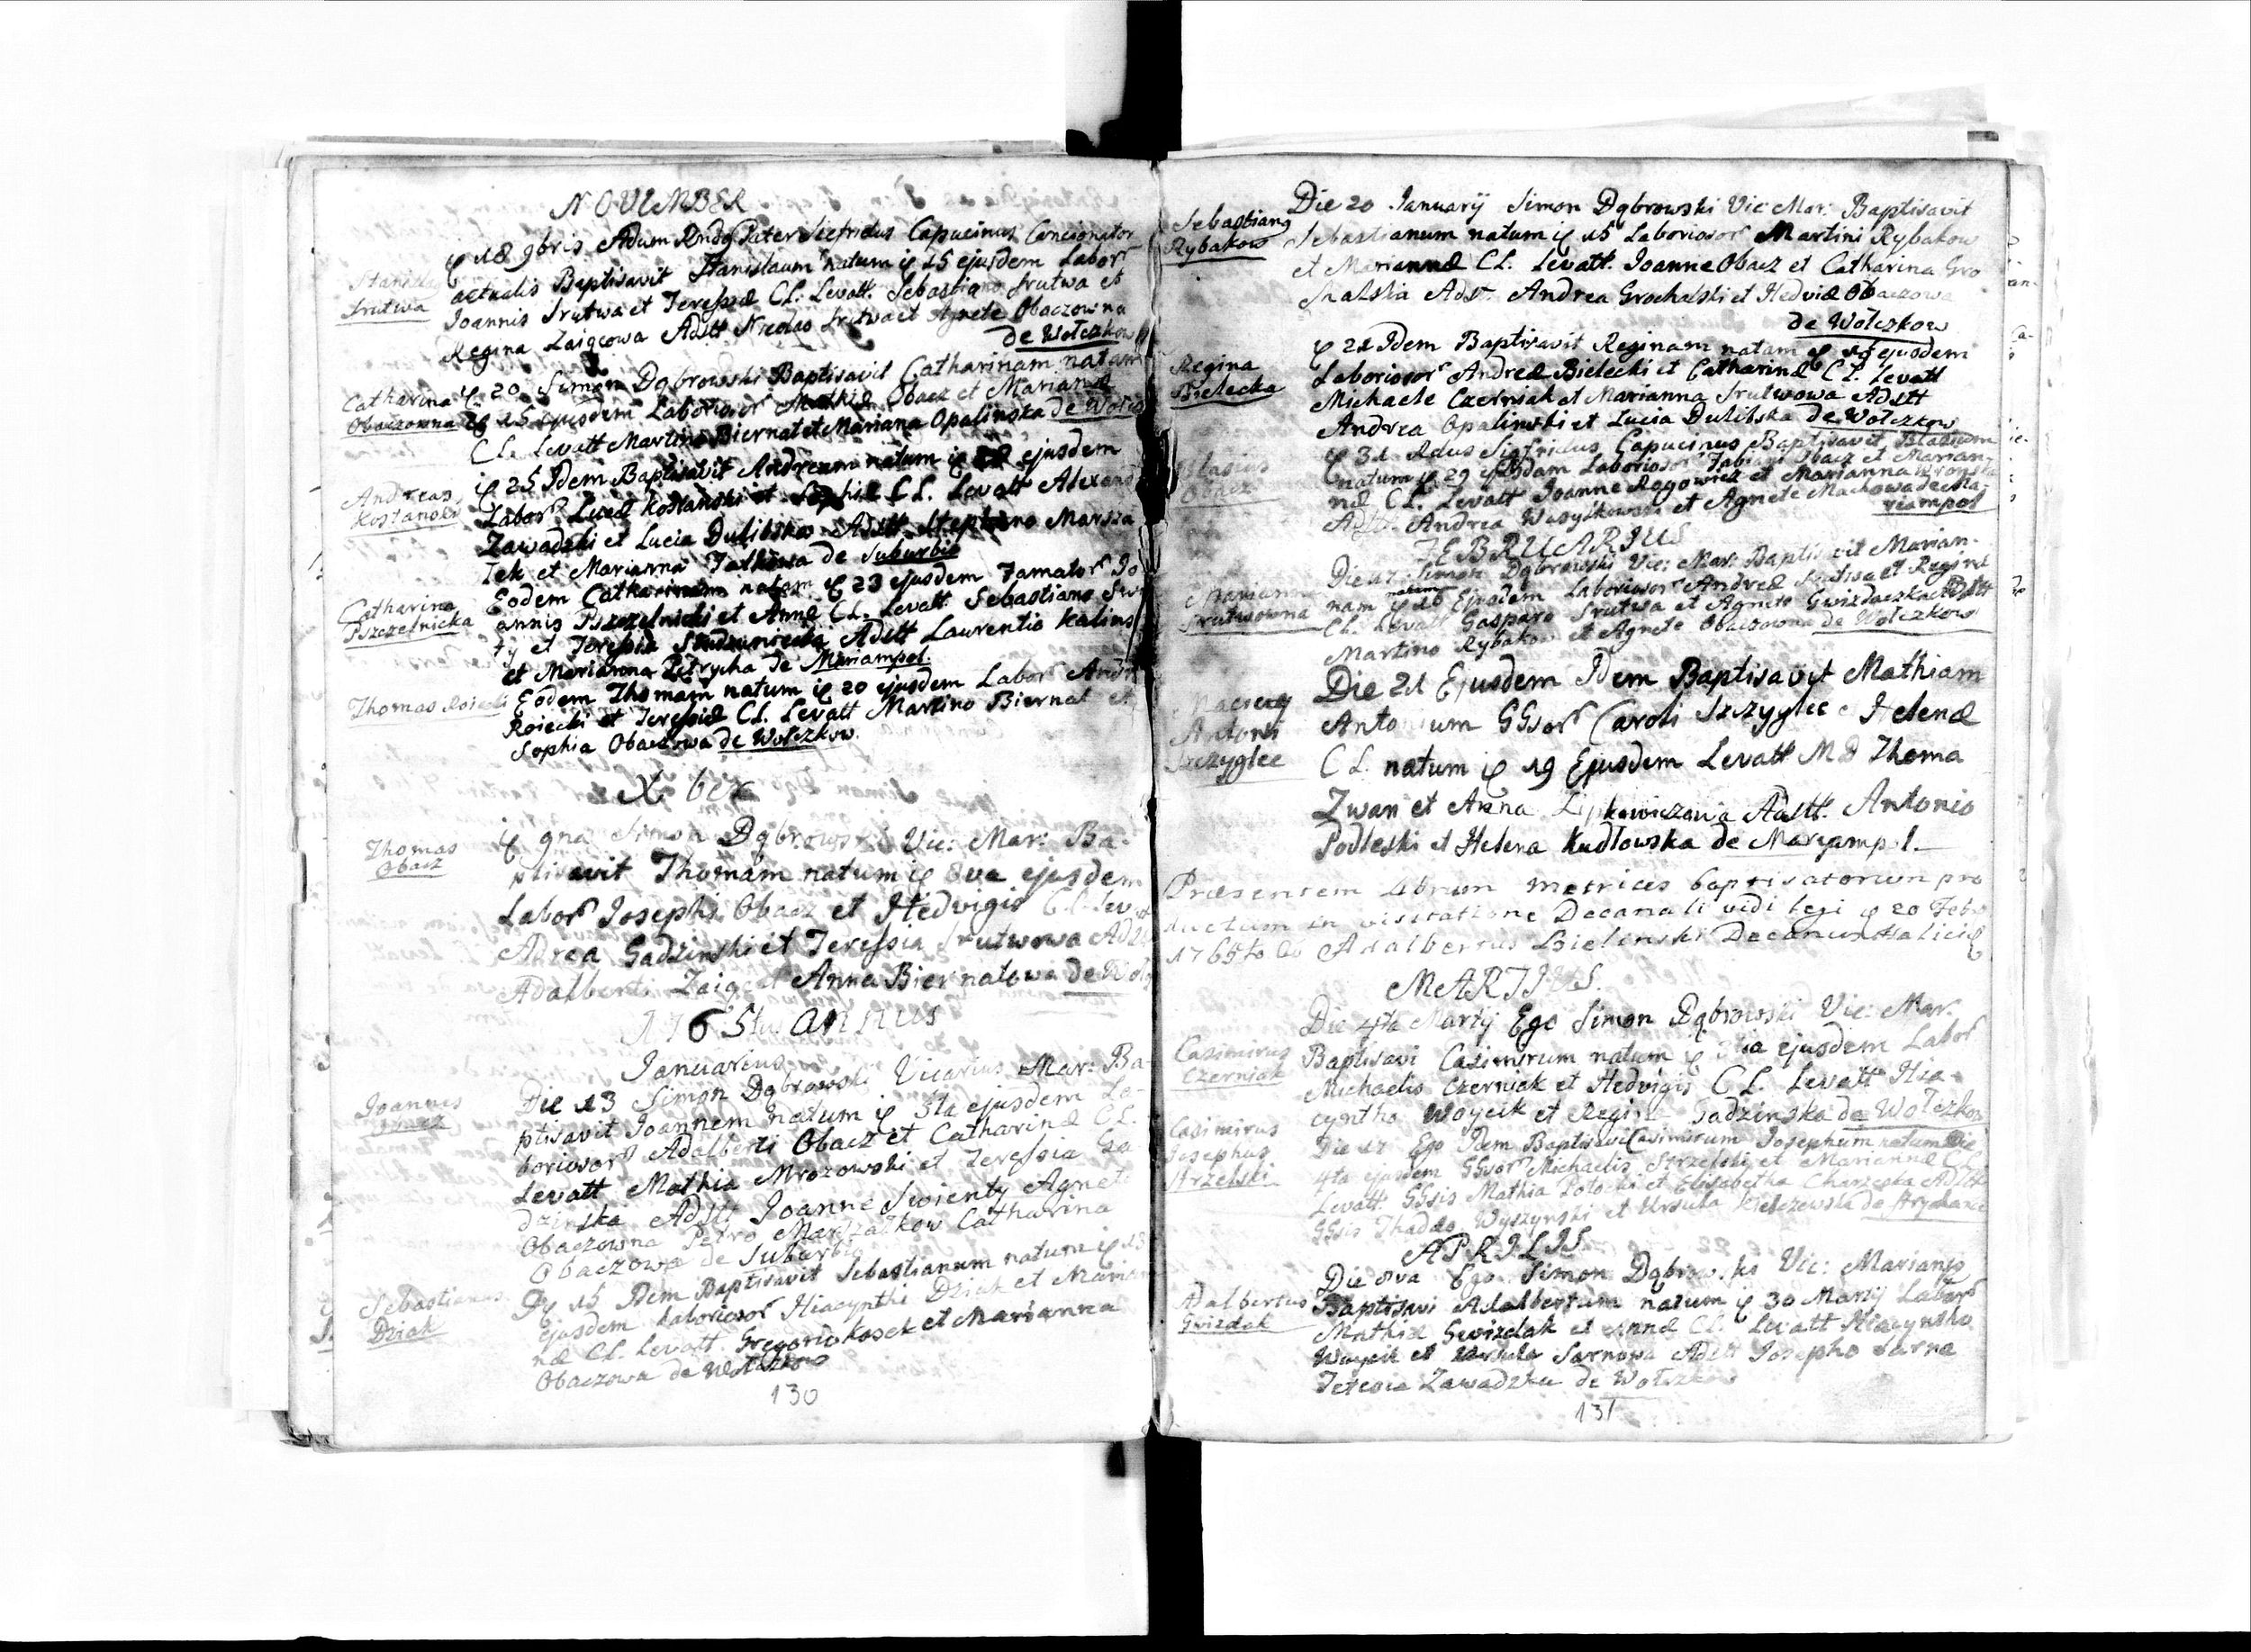 NOVEMBER
Stanislaus
Srutwa
18 9bris Adum Rndg Pater Siefridus Capucinus Concionator
actualis Baptisavit Stanislaum natum 15 ejusdem Labor
Joannis Srutwa et Teressiæ CL. Levatt. Sebastiano Srutwa et
Regina Zaigcowa Adstt Nicolao Srutwa et Agnete Obaczowna
de Wołczkow
Catharina
Obaczowna
20 Simon Dąbrowski Baptisavit Catharinam natam
15 ejusdem Laboriosor Mathiæ Obacz et Marianæ
CL. Levatt Martino Biernat et Mariana Opalinska de Wołcz
Andreas
Kostanski
25 Idem Baptisavit Andream natum ejusdem
Labor Lucæ Kostanski et Sophiæ CL. Levatt Alexand
Zawadzki et Lucia Dulibska Adstt Stephano Marsza
lek et Marianna Falkowa de Suburbio
Catharina
Pszczelnicka
Eodem Catharinam natam 23 ejusdem Famator Jo
annis Pszczelnicki et Annæ CL. Levatt Sebastiano
et Teressia Adstt Laurentio Kalins
et Marianna Petrycha de Mariampol.
Thomas Roiecki
Eodem Thomam natum 20 ejusdem Labor Andr
Roiecki et Teressiæ CL. Levatt Martino Biernat et
Sophia Obaczowa de Wołczkow.
X ber
Thomas
Obacz
9na Simon Dąbrowski Vic: Mar: Ba-
ptisavit Thomam natum 8va ejusdem
Labor Josephi Obacz et Hedvigis CL. Lev
Adrea Gadzinski et Teressia Srutwowa Adstt
Adalberti Zaigc et Anna Biernatowa de Woł
1765tus Annus
Januarius
Joannes
Obacz
Die 13 Simon Dąbrowski Vicarius Mar: Ba-
ptisavit Joannem natum 3ta ejusdem La-
boriosor Adalberti Obacz et Catharinæ CL.
Levatt Mathia Mrozowski et Teressia Ga
dzinska Adstt Joanne Swienty Agnete
Obaczowna Petro Marszałkow Catharina
Obaczowa de Suburbio
Sebastianus
Dziak
15 Idem Baptisavit Sebastianum natum 13
ejusdem Laboriosor Hiacynthi Dziak et Marian
næ CL. Levatt. Gregorio Kosek et Marianna
Obaczowa de Wołczkow
130
Sebastiang
Rybakow
Die 20 Januarij Simon Dąbrowski Vic: Mar: Baptisavit
Sebastianum natum 15 Laboriosor Martini Rybakow
et Mariannæ CL. Levatt. Joanne Obacz et Catharina Gro
chalska Adst. Andrea Grochalski et Hedviæ Obaczowa
de Wołczkow
Regina
Bielecka
21 Idem Baptisavit Reginam natam 19 ejusdem
Laboriosor Andreæ Bielecki et Catharinæ CL. Levatt
Michaele Czerniak et Marianna Srutwowa Adstt
Andrea Opalinski et Lucia Dulibska de Wołczkow
Blasius
Obacz
31 Adus Sigfridus Capucinus Baptisavit Blasium
natum 29 ejusdam Laboriosor Fabiani Obacz et Marian-
næ CL. Levatt Joanne Rogowicz et Marianna Wronska
Adstt. Andrea Wasylkowski et Agnete Machowa de Ma-
riampol
FEBRUARIUS
Marianna
Srutwowna
Die 17 Simon Dąbrowski Vic: Mar: Baptisavit Marian-
nam natam 16 Ejusdem Laboriosor Andreæ Srutwa et Reginæ
CL. Levatt Gasparo Srutwa et Agnete Gwizdaczka Adstt
Martino Rybakow et Agnete Obaczowna de Wołczkow
Macieey
Antoni
Szczyglec
Die 21 Ejusdem Idem Baptisavit Mathiam
Antonium GGsor Caroli Szczyglec Helenæ
CL. natum 19 Ejusdem Levatt MD Thoma
Zwan et Anna Lipkowiczowia Adstt. Antonio
Podleski et Helena Kudłowska de Maryampol.
Præsentem librum metrices baptisatorum pro
ductum in visitatione Decanali vidi legi 20 Febr
1765to Adalbertus Bielenski Decanus Haliciæ
MARTIUS.
Casimirus
Czerniak
Die 4ta Martij Ego Simon Dąbrowski Vic: Mar.
Baptisavi Casimirum natum ejusdem Labor
Michaelis Czerniak et Hedvigis CL. Levatt Hia-
cyntho Woycik et Regina Gadzinska de Wołczkow
Casimirus
Josephus
Strzelski
Die 17 Ego Idem Baptisavi Casimirum Josephum natum Die
4ta ejusdem GGsor Michaelis Strzelski et Mariannæ CL
Levatt. GGsis Mathia Potocki et Elisabetha Charzeska Adstt
GGsis Thaddæo Wyszynski et Ursula Kielczewska de
APRILIS.
Adalbertus
Gwizdak
Die 8va Ego Simon Dąbrowski Vic: Marianps
Baptisavi Adalbertum natum 30 Martij Labor
Mathiæ Gwizdak et Annæ CL. Levatt Hiacyntho
Woycik et Ursula Sarnowa Adstt Josepho Sarna
Teresia Zawadzka de Wołczkow
131